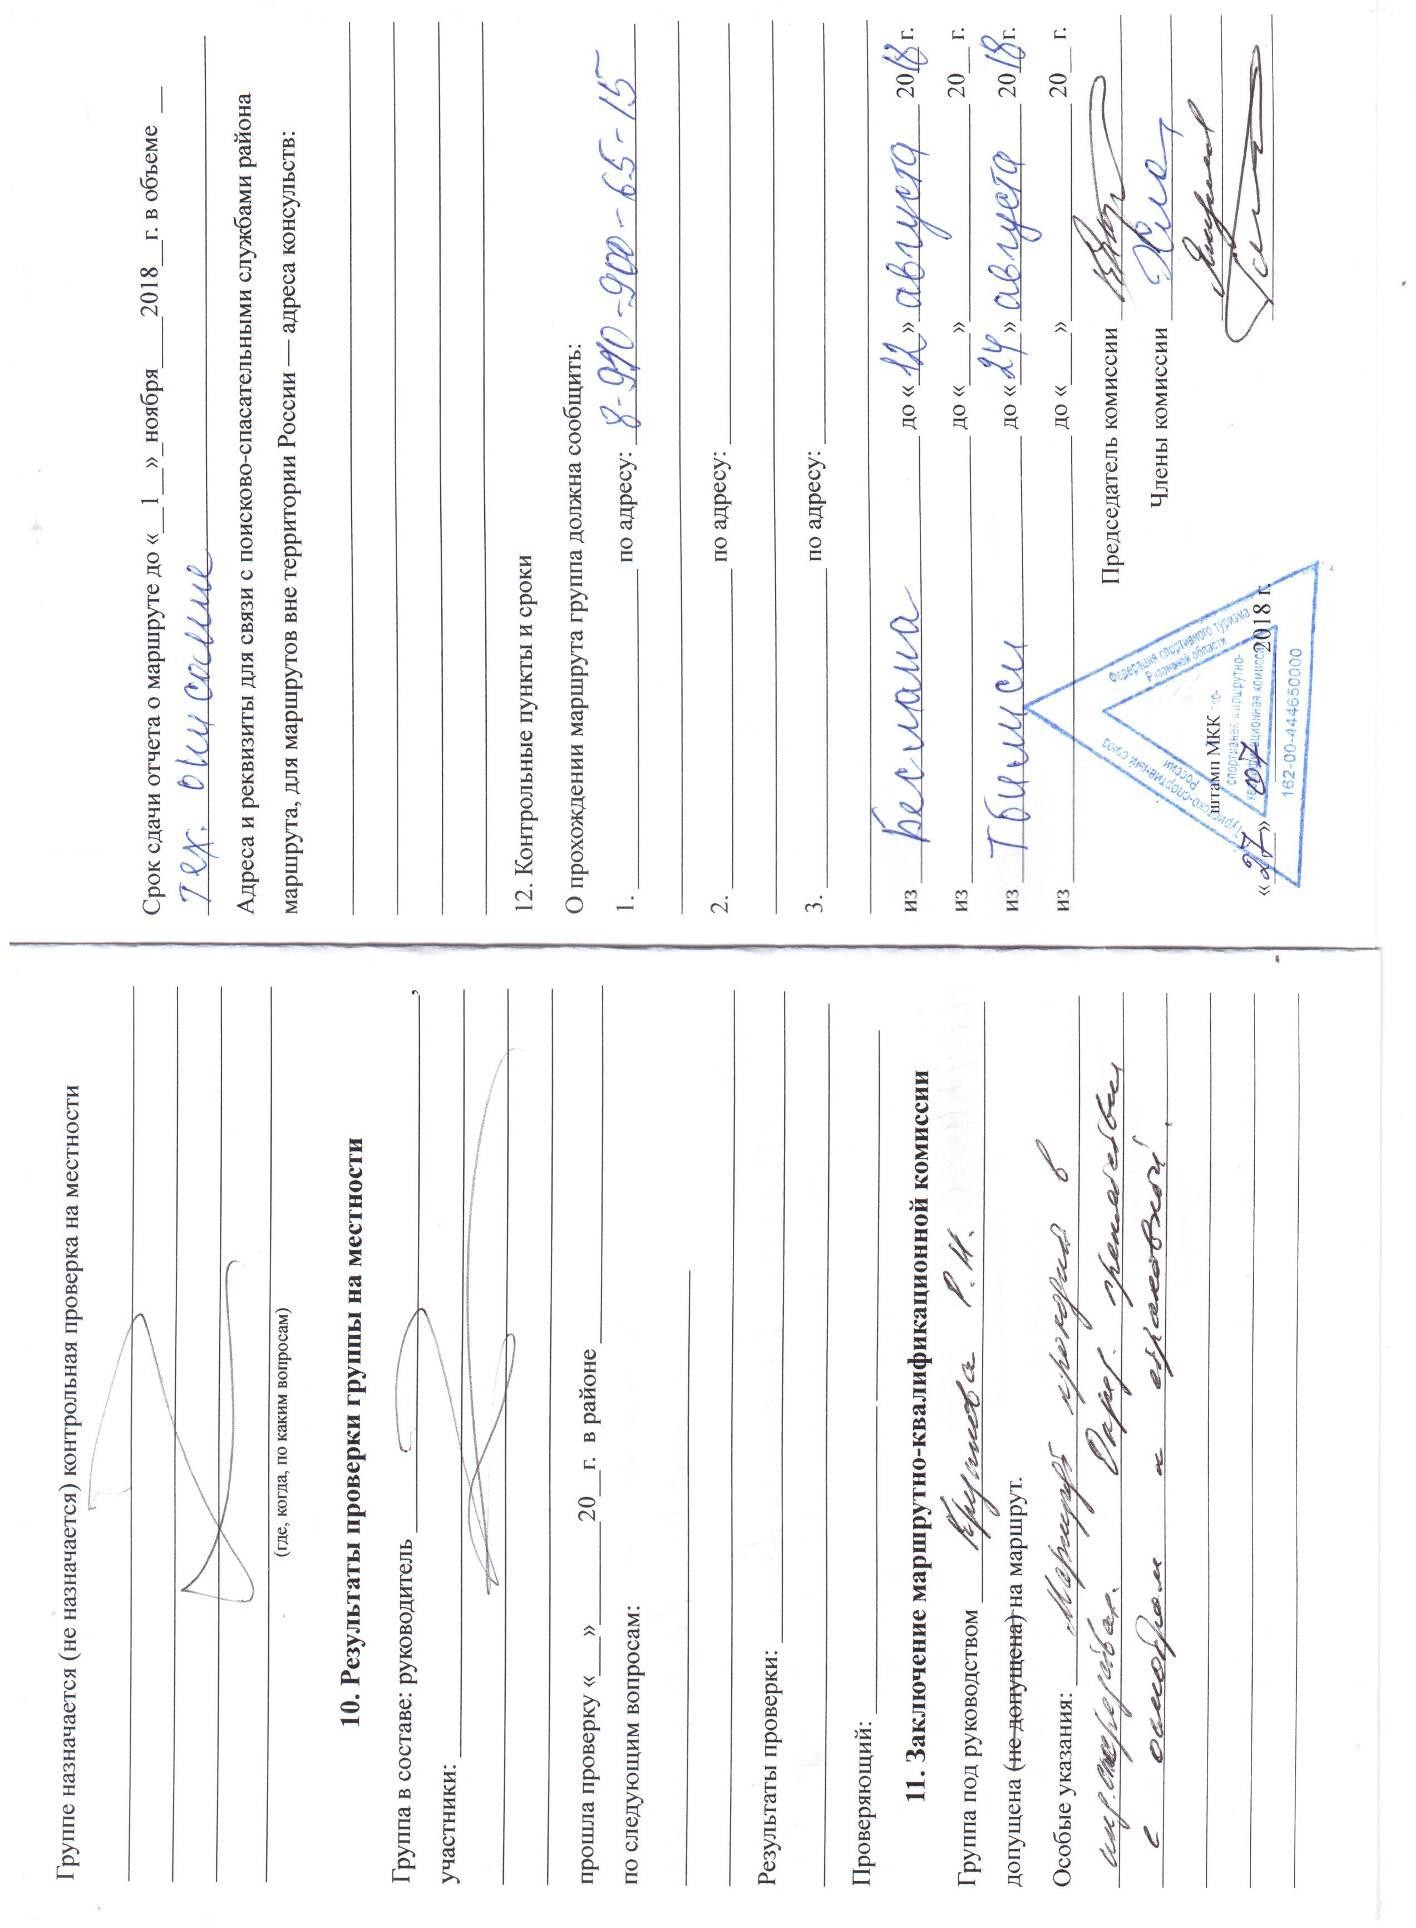 Группе назначается (не назначается) контрольная проверка на местности
(где, когда, по каким вопросам)
10. Результаты проверки группы на местности
Группа в составе: руководитель ,
участники:
прошла проверку «__» ______ 20__г. в районе
по следующим вопросам:
Результаты проверки:
Проверяющий:
11. Заключение маршрутно-квалификационной комиссии
Группа под руководством Р.И.
допущена (не допущена) на маршрут.
Особые указания: Маршрут проходит в
Опред. препятствия
с осмотром и страховкой.
Срок сдачи отчета о маршруте до «__1__»_ноября____2018__г. в объеме __
тех. описание
Адреса и реквизиты для связи с поисково-спасательными службами района
маршрута, для маршрутов вне территории России — адреса консульств:
12. Контрольные пункты и сроки
О прохождении маршрута группа должна сообщить:
1. ______ по адресу: 8-910-900-65-15
2. ______ по адресу:
3. ______ по адресу:
из Беслана до «12» августа 2018 г.
из ______ до «____» ______ 20__ г.
из Тбилиси до «24» августа 2018 г.
из ______ до «____» ______ 20__ г.
Председатель комиссии
Члены комиссии
штамп МКК
«27» 07 2018 г.
Туристско-спортивный союз
России
Федерация спортивного туризма
Рязанской области
спортивная маршрутно-
квалификационная комиссия
162-00-444650000